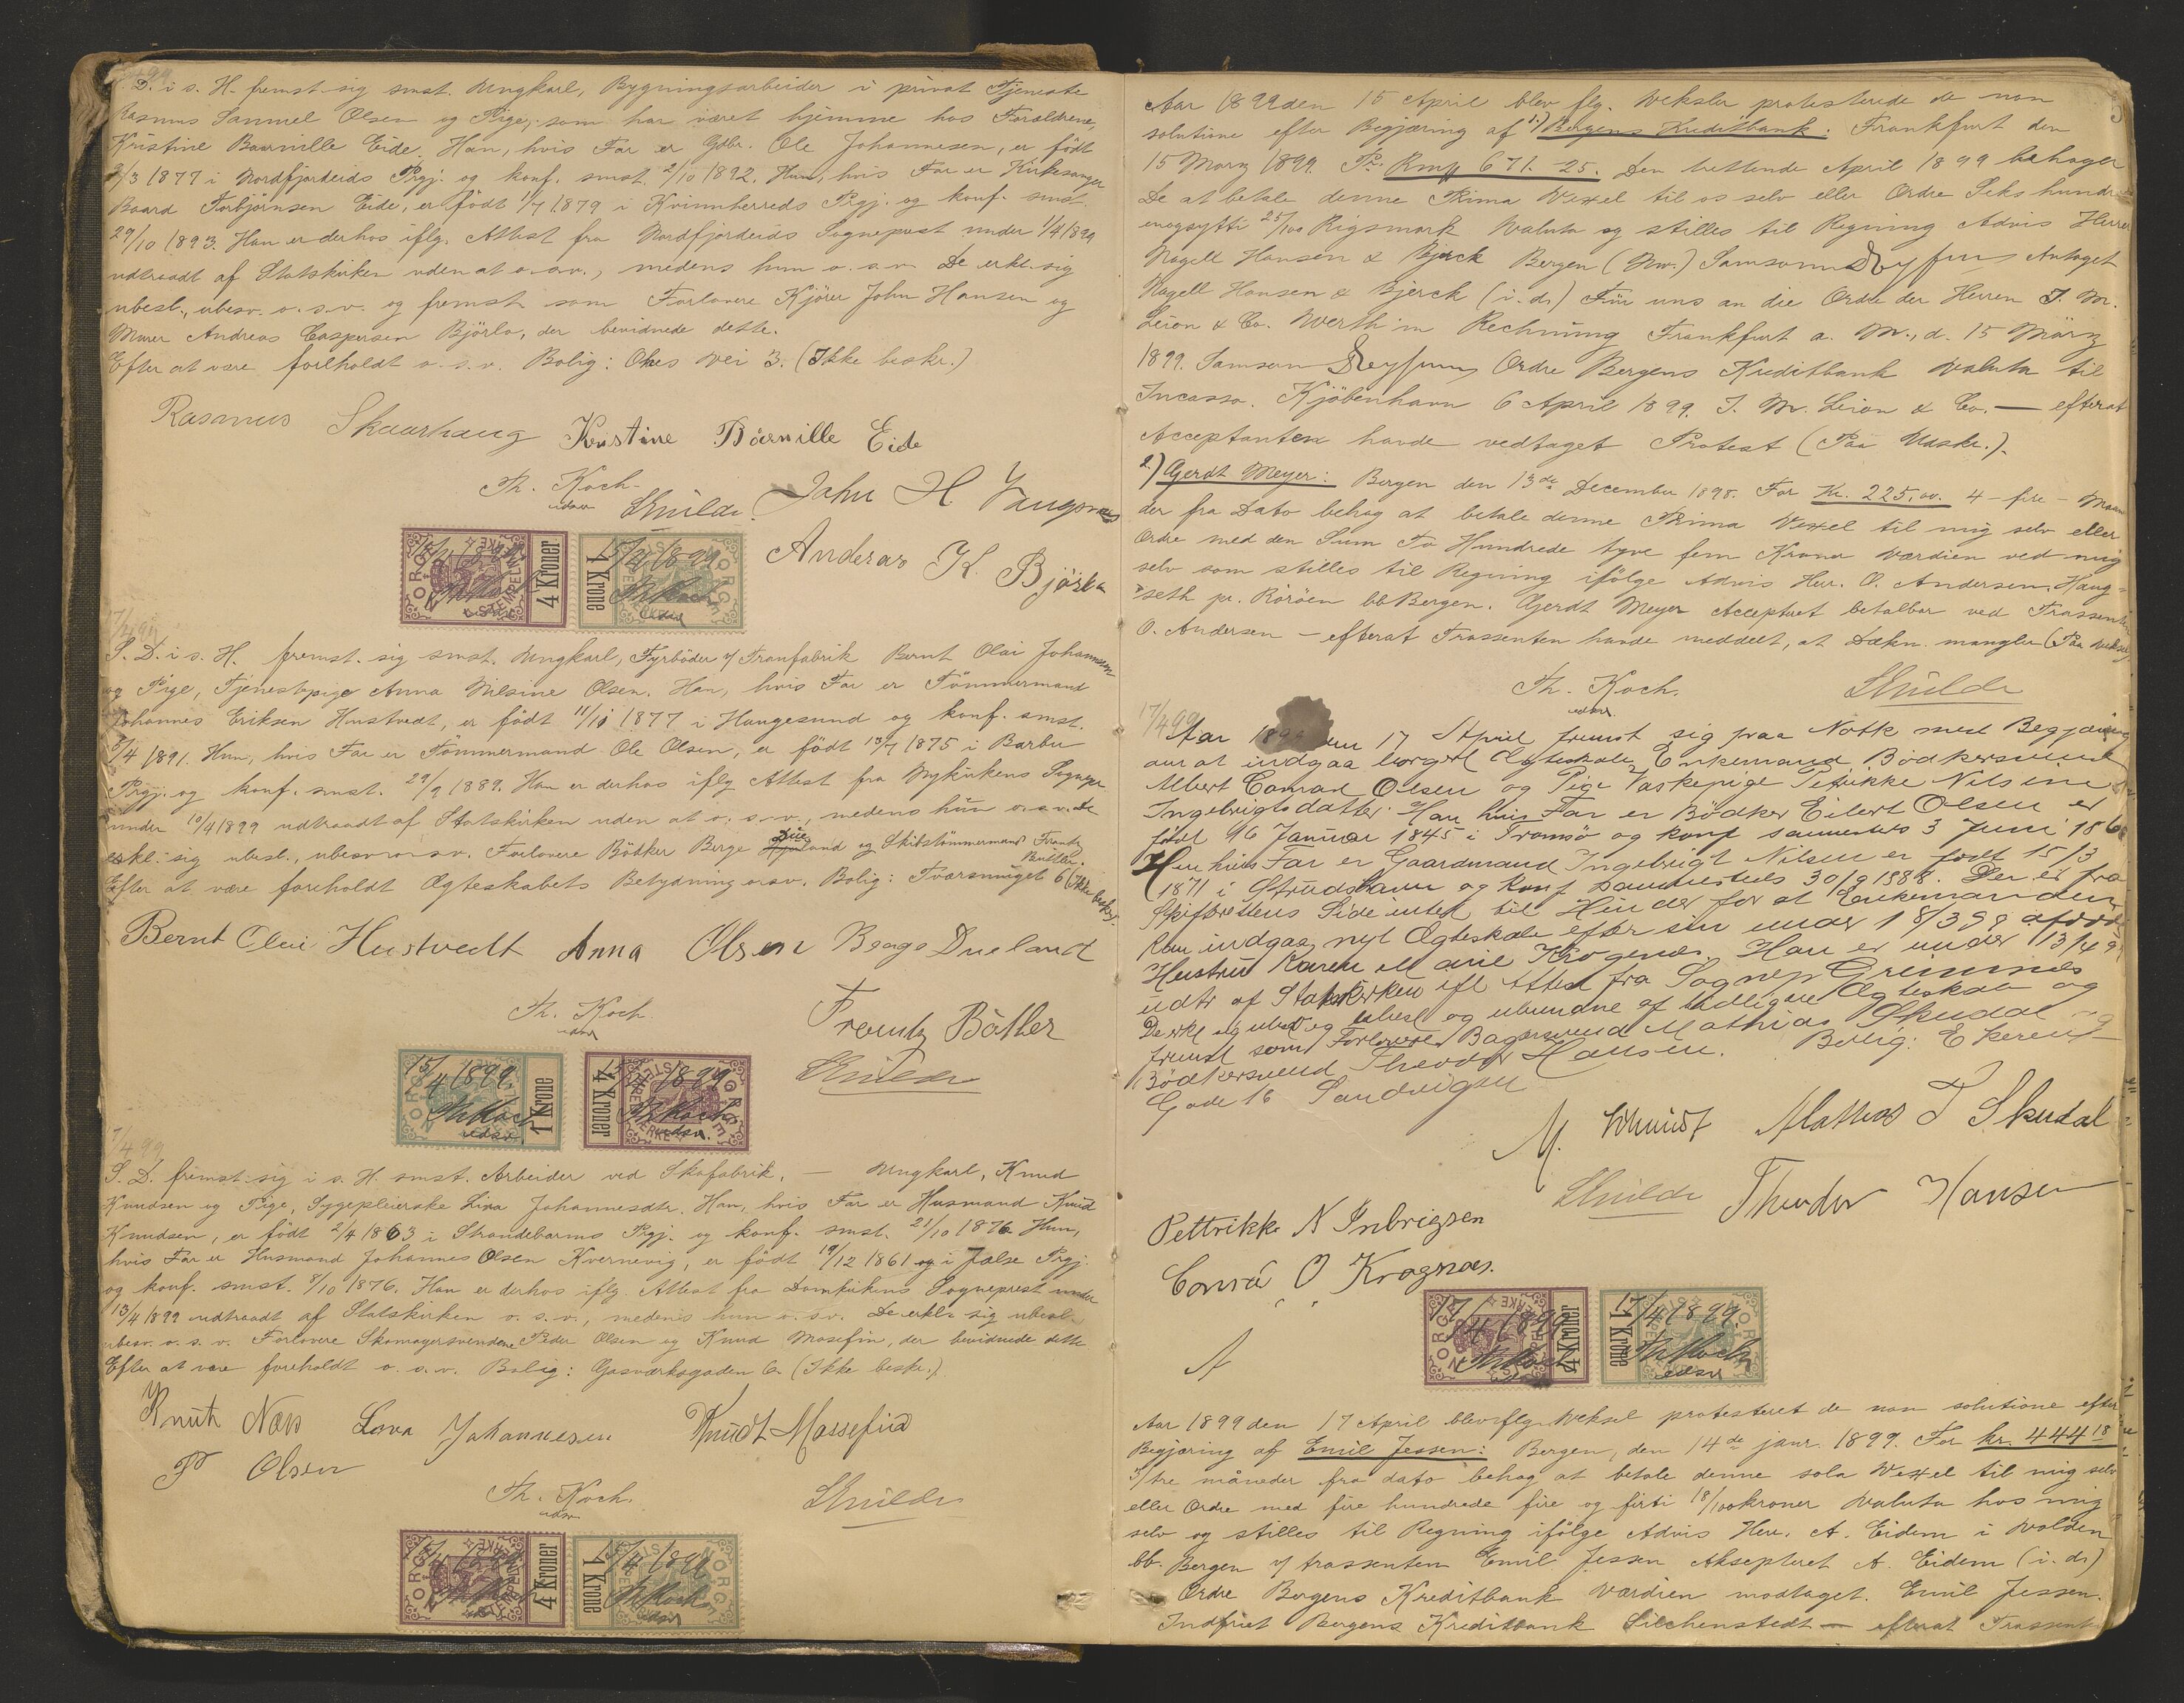 S. D. i s. H. fremst. sig smst. Ungkarl, Bygningsarbeider i privat Tjeneste
Rasmus Samuel Olsen og Pige, som har været hjemme hos Forældrene,
Kristine Baarnille Eide. Han, hvis Far er Gdbr. Ole Johannesen, er født
/3 1877 i Nordfjordeids Prgj. og konf. smst. 2/10 1892. Hun, hvis Far er Kirkesanger
Baard Torbjørnsen Eide, er født 1/7 1879 i Kvinnherreds Prgj. og konf. smst.
29/10 1893. Han er derhos iflg. Attest fra Nordfjordeids Sogneprest under 1/4 1899
udtraadt af Statskirken uden at o.s.v., medens hun o.s.v. De erkl. sig
ubesl., ubesv. o.s.v. og fremst. som Forlovere Kjører John Hansen og
Murer Andreas Caspersen Bjørlo, der bevidnede dette.
Efter at være foreholdt o.s.v. Bolig: Ohes Vei 3. (Ikke beskr.)
Rasmus Skaarhaug Kristine Baarnille Eide
Th. Koch
edsv
John H Vangsnes
Anderas K. Bjørlo
4 Kroner
15/4 1899
1 Krone
Th Koch
edsv
17/4 99
S. D. i s. H. fremst. sig smst. Ungkarl, Fyrbøder v/ Tranfabrik Bernt Olai Johannesen
og Pige, Tjenestepige Anna Nilsine Olsen. Han, hvis Far er Tømmermand
Johannes Eriksen Hustvedt, er født 11/10 1877 i Haugesund og konf. smst.
5/4 1891. Hun, hvis Far er Tømmermand Ole Olsen, er født 13/7 1875 i Barbu
Prgj. og konf. smst. 29/9 1889. Han er derhos iflg Attest fra Nykirkens Sognepr
under 10/4 1899 udtraadt af Statskirken uden at o.s.v., medens hun o.s.v. De
erkl. sig ubesl., ubesv. o.s.v. Forlovere Bødker Berge Dueland og Skibstømmermand Frantz
Bøtler.
Efter at være foreholdt Ægteskabets Betydning o.s.v. Bolig: Tværsmuget 6 (Ikke beskr.)
Bernt Olai Hustvedt Anna Olsen Berge Dueland
Th. Koch.
edsv
Frantz Bøtler
15/4 1899
1 Krone
Th Koch
edsv.
4 Kroner
15/4 1899
Th Koch
edsv.
/4 99
S. D. fremst. sig i s. H. smst. Arbeider ved Skofabrik, — Ungkarl, Knud
Knudsen og Pige, Sygepleierske Lina Johannesdtr. Han, hvis Far er Husmand Knud
Knudsen, er født 2/4 1863 i Strandebarms Prgj. og konf. smst. 21/10 1876. Hun,
hvis Far er Husmand Johannes Olsen Kvernevig, er født 19/12 1861 og i Jælse Prgj.
og konf. smst. 8/10 1876. Han er derhos iflg. Attest fra Domkirkens Sogneprest under
13/4 1899 udtraadt af Statskirken o.s.v., medens hun o.s.v. De erkl. sig ubesl.
ubesv. o.s.v. Forlovere Skomagersvendene Peder Olsen og Knud Mosefin, der bevidnede dette
Efter at være foreholdt o.s.v. Bolig: Gasværksgaden 6. (Ikke beskr.)
Knut Næss Lovn Johannesen Knudt Massefin
P Olsen
Th. Koch.
edsv
4 Kroner
15/4 1899
1 Krone
Th Koch
edsv
5
Aar 1899 den 15 April blev flg. Veksler protesterede de non
solutione efter Begjæring af 1.) Bergens Kreditbank: Frankfurt den
15 Marz 1899. Pr. Rmk 671.-25. Den trettende April 1899 behager
De at betale denne Prima Vexel til os selv eller Ordre Seks hundrede
enogsytti 25/100 Rigsmark Valuta og stilles til Regning Advis Herrer
Nagell Hansen & Bjerck Bergen (Nw.) Samson Antaget
Nagell Hansen & Bjerck (i. d.) Für uns an die Ordre der Herren J. M.
Leion & Co. Werth in Rechnung Frankfurt a. M., d. 15 März
1899. Samson Ordre Bergens Kreditbank Valuta til
Incasso. Kjøbenhavn 6 April 1899. J. M. Leion & Co. — efterat
Acceptanten havde vedtaget Protest (Paa Veksl.).
2.) Gerdt Meyer: Bergen den 13de December 1898. For Kr. 225.00. 4 - fire - Maane
der fra Dato behag at betale denne Prima Vexel til mig selv eller
Ordre med den Sum To Hundrede tyve fem Kroner Værdien ved mig
selv som stilles til Regning ifølge Advis Herr. O. Andersen, Haug=
seth pr. Rørøen bb Bergen. Gerdt Meyer Acceptert betalbar ved Trassenten
O. Andersen — efterat Trassenten havde meddelt, at Dækn. mangler (Paa Veksl.)
Th. Koch.
edsv.
17/4 99
Aar 1899 den 17 April fremst sig paa Notk med Begjæring
om at indgaa borgerl Ægteskab Enkemand Bødkersvend
Albert Conrad Olsen og Pige Vaskepige Petrikke Nilsine
Ingebrigtsdatter. Han hvis Far er Bødker Eilert Olsen er
født 16 Januar 1845 i Tromsø og konf sammesteds 3 Juni 186
Hun hvis Far er Gaardmand Ingebrigt Nilsen er født 15/3
1871 i Strudshavn og konf sammesteds 30/9 1888. Der er fra
Skifterettens Side intet til Hinder for at Enkemanden
kan indgaa nyt Ægteskab efter sin under 18/3 98 afdøde
Hustru Karen Marie Krogenes. Han er under 13/4 99
udtr af Statskirken ifl Attest fra Sognep Greimnes
De erkl sig ubesl og ubundne af tidligere Ægteskab og
fremst som Forlovere Bagersvend Mathias Skudal og
Bødkersvend Theodor Hansen. Bolig: Ekeren
Gade 16 Sandvigen
M. Schmidt Mathias T Skudal
Theodor Hansen
Pettrikke N Inbrigsen
Conra O Kragnæs.
17/4 1899
4 Kroner
1 Krone
17/4 1899
Th Koch
edsv
Aar 1899 den 17 April blev flg. Veksel protesteret de non solutione efter
Begjæring af Emil Jessen: Bergen, den 14de janr. 1899. For kr. 444 18
3/tre måneder fra dato behag at betale denne sola Vexel til mig selv
eller Ordre med fire hundrede fire og firti 18/100 kroner Valuta hos mig
selv og stilles til Regning ifølge Advis Herr. A. Eidem i Volden
bb. Bergen v/ trassenten Emil Jessen Aksepteret A. Eidem (i. d.)
Ordre Bergens Kreditbank Værdien modtaget. Emil Jessen.
Indfriet Bergens Kreditbank Silchenstedt — efterat Trassent